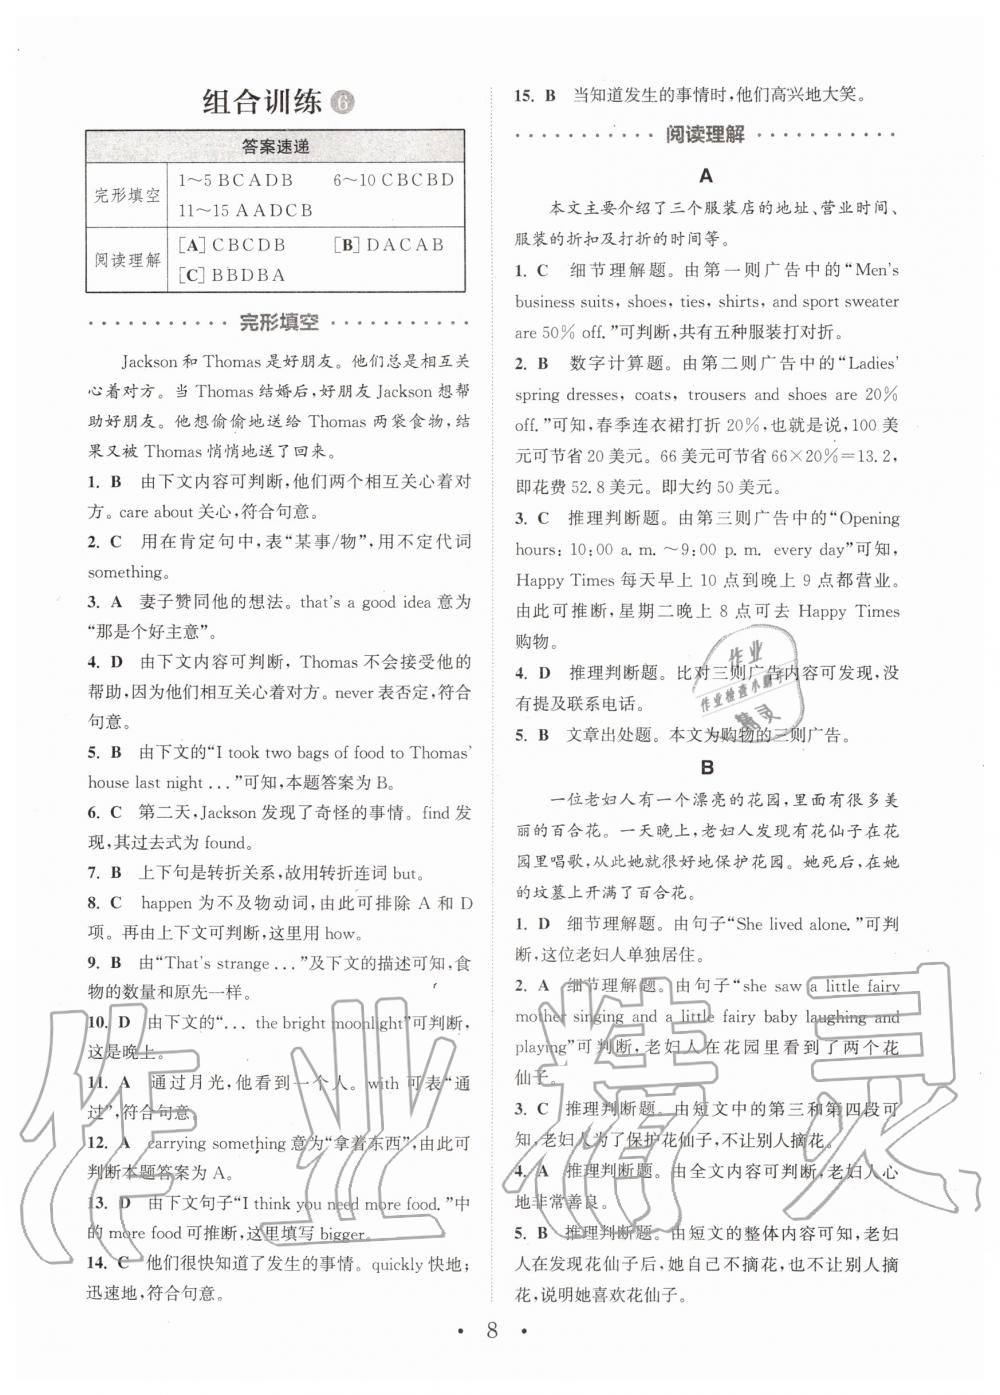 组合训练 6
答案速递
完形填空
1～5 B C A D B 6～10 C B C B D
11～15 A A D C B
阅读理解
[A] C B C D B [B] D A C A B
[C] B B D B A
完形填空
Jackson 和 Thomas 是好朋友。他们总是相互关
心着对方。当 Thomas 结婚后,好朋友 Jackson 想帮
助好朋友。他想偷偷地送给 Thomas 两袋食物,结
果又被 Thomas 悄悄地送了回来。
1. B 由下文内容可判断,他们两个相互关心着对
方。care about 关心,符合句意。
2. C 用在肯定句中,表“某事/物”,用不定代词
something。
3. A 妻子赞同他的想法。that's a good idea 意为
“那是个好主意”。
4. D 由下文内容可判断，Thomas 不会接受他的
帮助,因为他们相互关心着对方。never 表否定,符合
句意。
5. B 由下文的“I took two bags of food to Thomas'
house last night ...”可知,本题答案为 B。
6. C 第二天,Jackson 发现了奇怪的事情。find 发
现,其过去式为 found。
7. B 上下句是转折关系,故用转折连词 but。
8. C happen 为不及物动词,由此可排除 A 和 D
项。再由上下文可判断,这里用 how。
9. B 由“That's strange ...”及下文的描述可知,食
物的数量和原先一样。
10. D 由下文的“... the bright moonlight”可判断,
这是晚上。
11. A 通过月光,他看到一个人。with 可表“通
过”,符合句意。
12. A carrying something 意为“拿着东西”,由此可
判断本题答案为 A。
13. D 由下文句子“I think you need more food.”中
的 more food 可推断,这里填写 bigger。
14. C 他们很快知道了发生的事情。quickly 快地；
迅速地,符合句意。
15. B 当知道发生的事情时,他们高兴地大笑。
阅读理解
A
本文主要介绍了三个服装店的地址、营业时间、
服装的折扣及打折的时间等。
1. C 细节理解题。由第一则广告中的“Men's
business suits, shoes, ties, shirts, and sport sweater
are 50% off.”可判断,共有五种服装打对折。
2. B 数字计算题。由第二则广告中的“Ladies'
spring dresses, coats, trousers and shoes are 20%
off.”可知,春季连衣裙打折 20%,也就是说,100 美
元可节省 20 美元。66 美元可节省 66×20%=13.2,
即花费 52.8 美元。即大约 50 美元。
3. C 推理判断题。由第三则广告中的“Opening
hours: 10:00 a. m. ～9:00 p. m. every day”可知,
Happy Times 每天早上 10 点到晚上 9 点都营业。
由此可推断,星期二晚上 8 点可去 Happy Times
购物。
4. D 推理判断题。比对三则广告内容可发现,没
有提及联系电话。
5. B 文章出处题。本文为购物的三则广告。
B
一位老妇人有一个漂亮的花园,里面有很多美
丽的百合花。一天晚上,老妇人发现有花仙子在花
园里唱歌,从此她就很好地保护花园。她死后,在她
的坟墓上开满了百合花。
1. D 细节理解题。由句子“She lived alone.”可判
断,这位老妇人单独居住。
2. A 细节理解题。由句子“she saw a little fairy
mother singing and a little fairy baby laughing and
playing”可判断,老妇人在花园里看到了两个花
仙子。
3. C 推理判断题。由短文中的第三和第四段可
知,老妇人为了保护花仙子,不让别人摘花。
4. A 推理判断题。由全文内容可判断,老妇人心
地非常善良。
5. B 推理判断题。由短文的整体内容可知,老妇
人在发现花仙子后,她自己不摘花,也不让别人摘
花,说明她喜欢花仙子。
作业
作业检查小助手
精灵
作业精灵
• 8 •